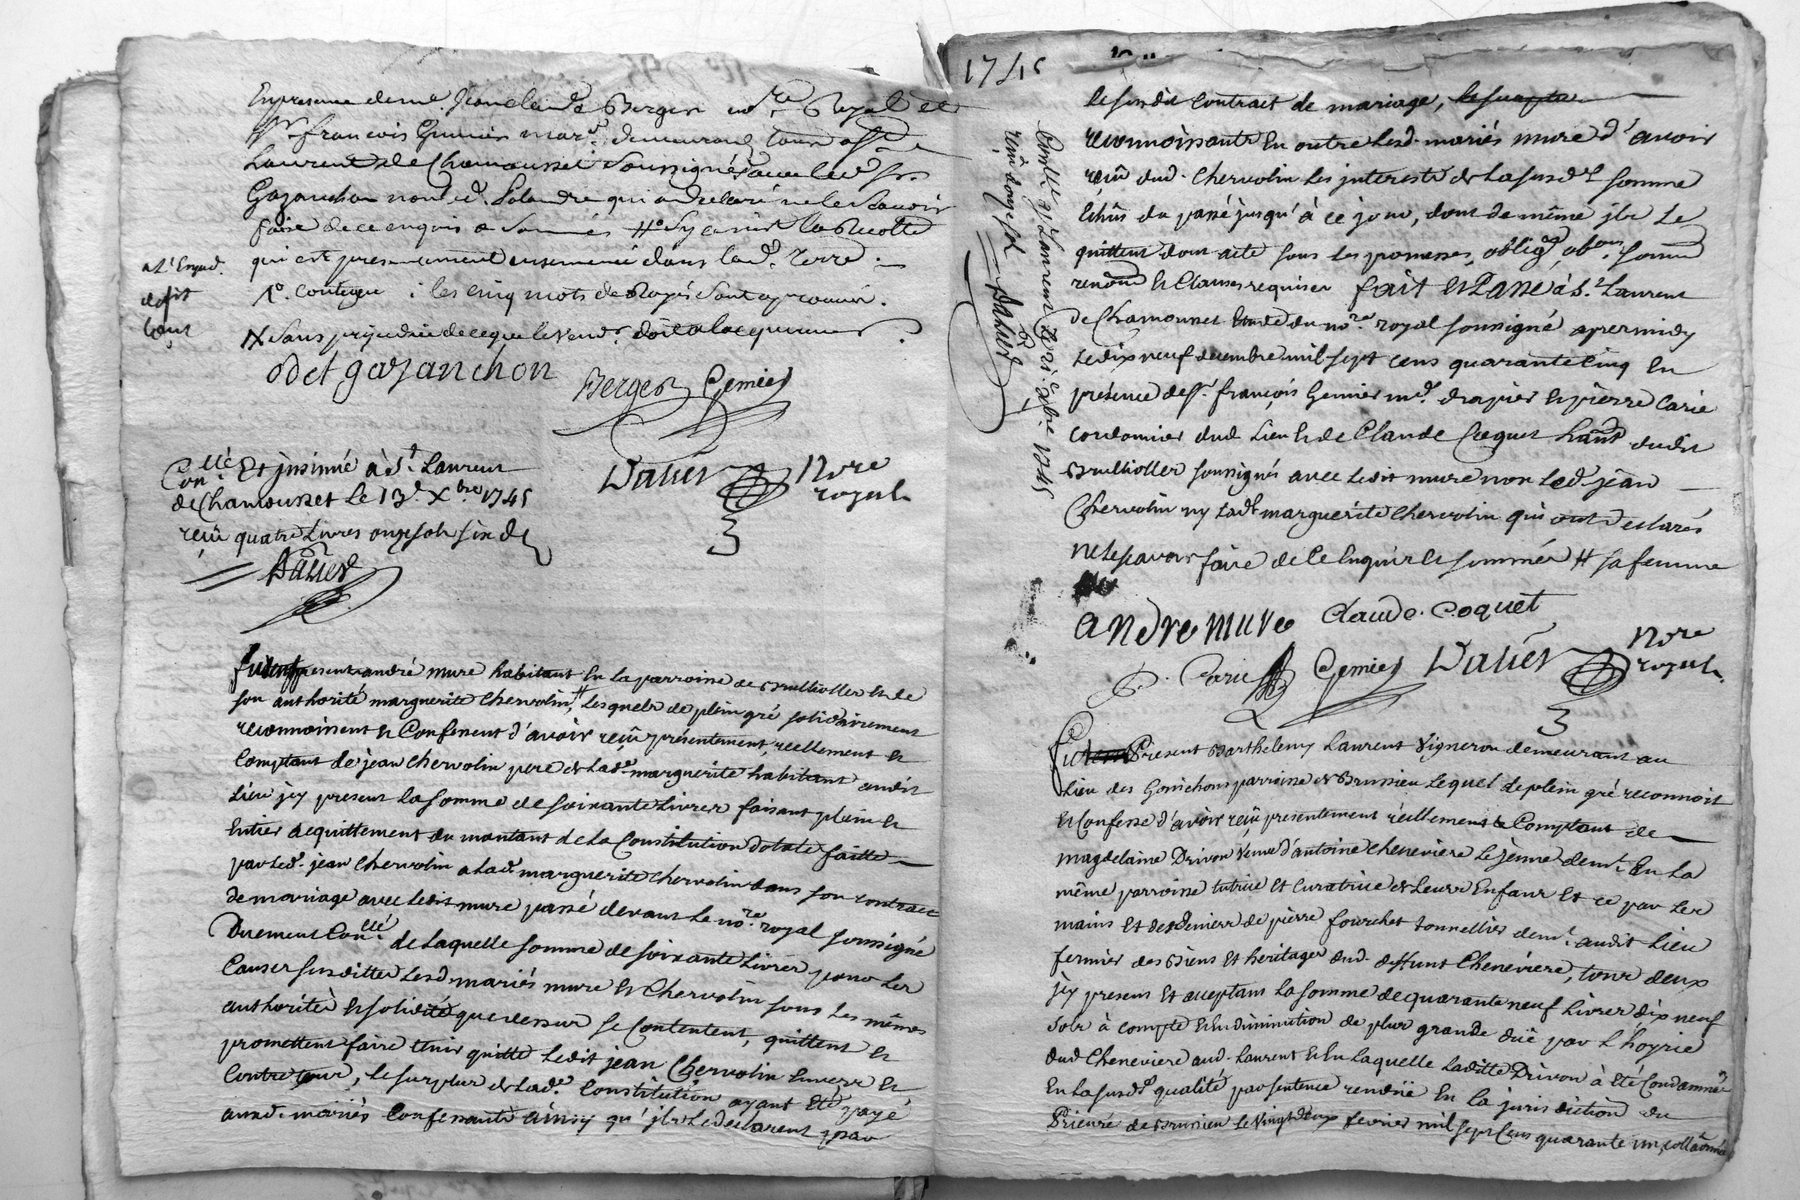 En presence de me. Jean claude Berger no.re Royal et
Sr. francois Gemier mar.d demeurand tous aud.
Laurent de Chamousset soussignés avec led. Sr.
Gazanchon non led. Solandre qui a declaré ne le scavoir
faire de ce enquis et sommés # sy avint la Recolte
qui est presentement ensemencé dans lad. Terre
les cinq mots de Royés sont aprouvés.
# sans prejudice de ce que le vend.r doit a lacquereur
odet gazanchon
Berger Gemier
Con.llé Et jnsinué à S.t Laurent
de Chamousset Le 13.e Xbre 1745
reçû quatre Livres onze sols six d.
Dalier
Dalier Nore
royal
fut present andré mure habitant En La parroisse de Brullioller Et de
son authorité marguerite Chervolin, # Lesquels de plein gré solidairement
reconnoissent et Confessent d'avoir reçû présentement, reellement et
Comptant de jean Chervolin pere de Lad.e marguerite habitant audit
Lieu jcy present la somme de soixante Livres faisant plein et
Entier acquittement du montant de La Constitution dotale faitte
par Led. jean Chervolin a Lad. marguerite Chervolin dans son contract
de mariage avec Ledit mure passé devant Le no.re royal soussigné
Duement Con.llé de Laquelle somme de soixante Livres pour Les
Causes susdittes Lesd. mariés mure et Chervolin sous Les mêmes
authorité et solidité que dessus se Contentent, quittent et
promettent faire tenir quitte Ledit jean Chervolin Envers et
Contre tous, Le surplus de Lad.e Constitution ayant Eté payé
ausd. mariés Confessants ainsy qu'jls Le declarent par
1745
Con.llé à S.t Laurent
reçû douze sols Dalier
le susdit contract de mariage,
reconnoissants En outre Lesd. mariés mure d'avoir
reçû dud. Chervolin Les jnterests de La susd.e somme
Echûs du passé jusqu'à ce jour, dont de même jls Le
quittent dont acte sous Les promesses, oblig.on, ob.ons, soum.
renon. et Clauses requises fait et Passé à S.t Laurent
de Chamousset Etude du no.re royal soussigné apres midy
Le dix neuf decembre mil sept cens quarante cinq En
présence de Sr. françois Gemier m.d drapier et pierre Carie
cordonnier dud. Lieu et de Claude Coquet hant dudit
Brullioller soussignés avec Ledit mure non Led. jean
Chervolin ny Lad.e marguerite Chervolin qui ont declarés
ne Le scavoir faire de Ce Enquis et sommés # sa femme
andre mure Claude Coquet
P. Carie Gemier Dalier Nore
royal
fut Present Barthelemy Laurent Vigneron demeurant au
Lieu des Gonichons parroisse de Brussieu Lequel de plein gré reconnoit
et Confesse d'avoir reçû présentement réellement et Comptant de
magdelaine Drivon Veuve d'antoine Cheneviere Le jeune dem.t En La
même parroisse tutrice et Curatrice de Leurs Enfans et ce par Les
mains et des deniers de pierre fourchet tonnellier dem.t audit Lieu
fermier des Biens et heritages dud. deffunt Cheneviere, tous deux
jcy presens et acceptans La somme de quarante neuf Livres dix neuf
sols à compte et En diminution de plus grande dûë par L'hoyrie
dud Cheneviere aud. Laurent et En Laquelle Laditte Drivon à été Condamnée
En La susd.e qualité par sentence rendüe En La jurisdiction du
Prieuré de Brussieu Le Vingt deux fevrier mil sept cens quarante un,